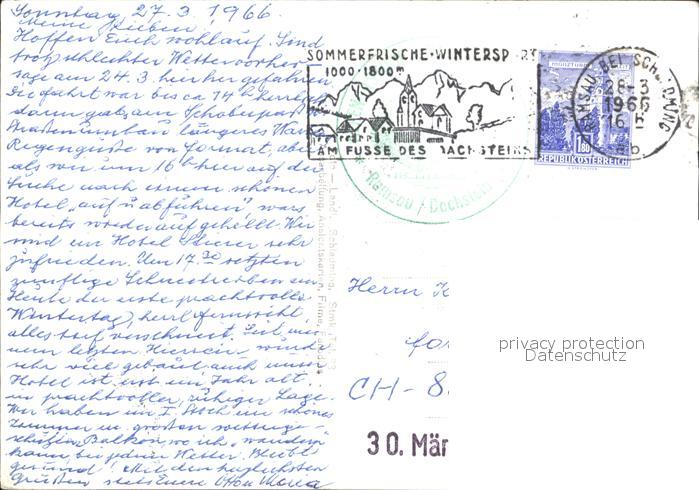 Sonntag 27.3.1966.
Meine Lieben!
Hoffen Euch wohlauf. Sind
trotz schlechter Wettervorher-
sage am 24.3. hierher gefahren
Die Fahrt war bis ca 14h herrl.
dann gab's am
längeres
Regengüsse von Format, aber
als wir um 16h hier auf der
Suche nach einem schönen
Hotel "auf u abfuhren", war's
bereits wieder aufgehellt. Wir
sind im Hotel sehr
zufrieden. Um 17.30 setzten
zünftige Schneetreiben ein
Heute der erste prachtvolle
Wintertag, herrl Fernsicht
alles tief verschneit. Seit
letzten Hiersein, wurde
sehr viel gebaut, auch unser
Hotel ist erst ein Jahr alt,
in prachtvoller, ruhiger Lage.
Wir haben im I. Stock ein schönes
Zimmer m. großem wetterge-
schützten Balkon, wo ich "wandern"
kann bei jedem Wetter. Bleibt
gesund! Mit den herzlichsten
Grüßen stets Eure
SOMMERFRISCHE·WINTERSP
1000-1800m
AM FUSSE DES DACHSTEINS
RAMSAU BEI SCHLADMING
28-3
1966
16
b
1.80
REPUBLIK ÖSTERREICH
Ramsau / Dachstein
Herrn K
CH-8
30. Mär
privacy protection
Datenschutz